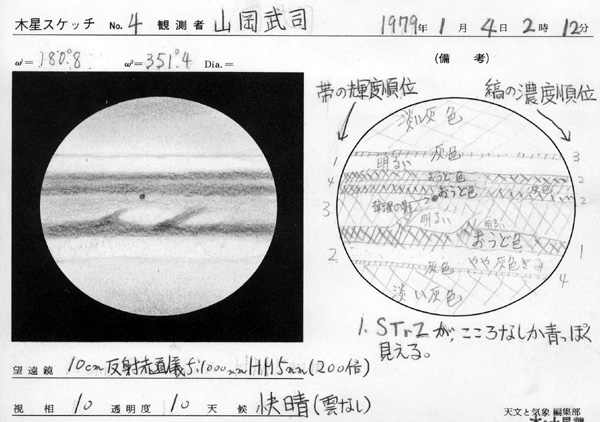 木星スケッチ No. 4 観測者 山岡武司 1979年1月4日2時12分
ω¹=180°.8 ω²=351°.4 Dia.=
(備考)
帯の輝度順位 縞の濃度順位
淡い灰色
1 灰色 3
明るい
4 おうど色 2
おうど色 灰色 2
衛星の影
3 明るい 明るい
おうど色 1
2 やや灰色ぎみ
灰色 4
淡い灰色
1. STrZが、こころなしか青っぽく
見える。
望遠鏡 10cm反射赤道儀 f:1000mm HM5mm (200倍)
視相 10 透明度 10 天候 快晴(雲なし)
天文と気象 編集部